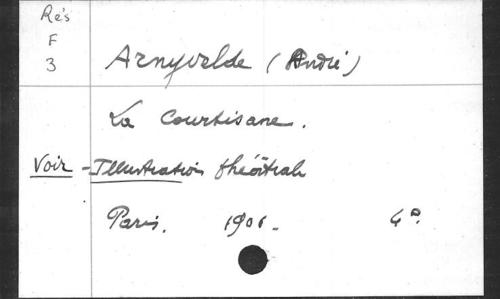 Rés
F
3
Arnyvelde (André)
La Courtisane.
Voir - Illustration théâtrale
Paris. 1906. 4°.